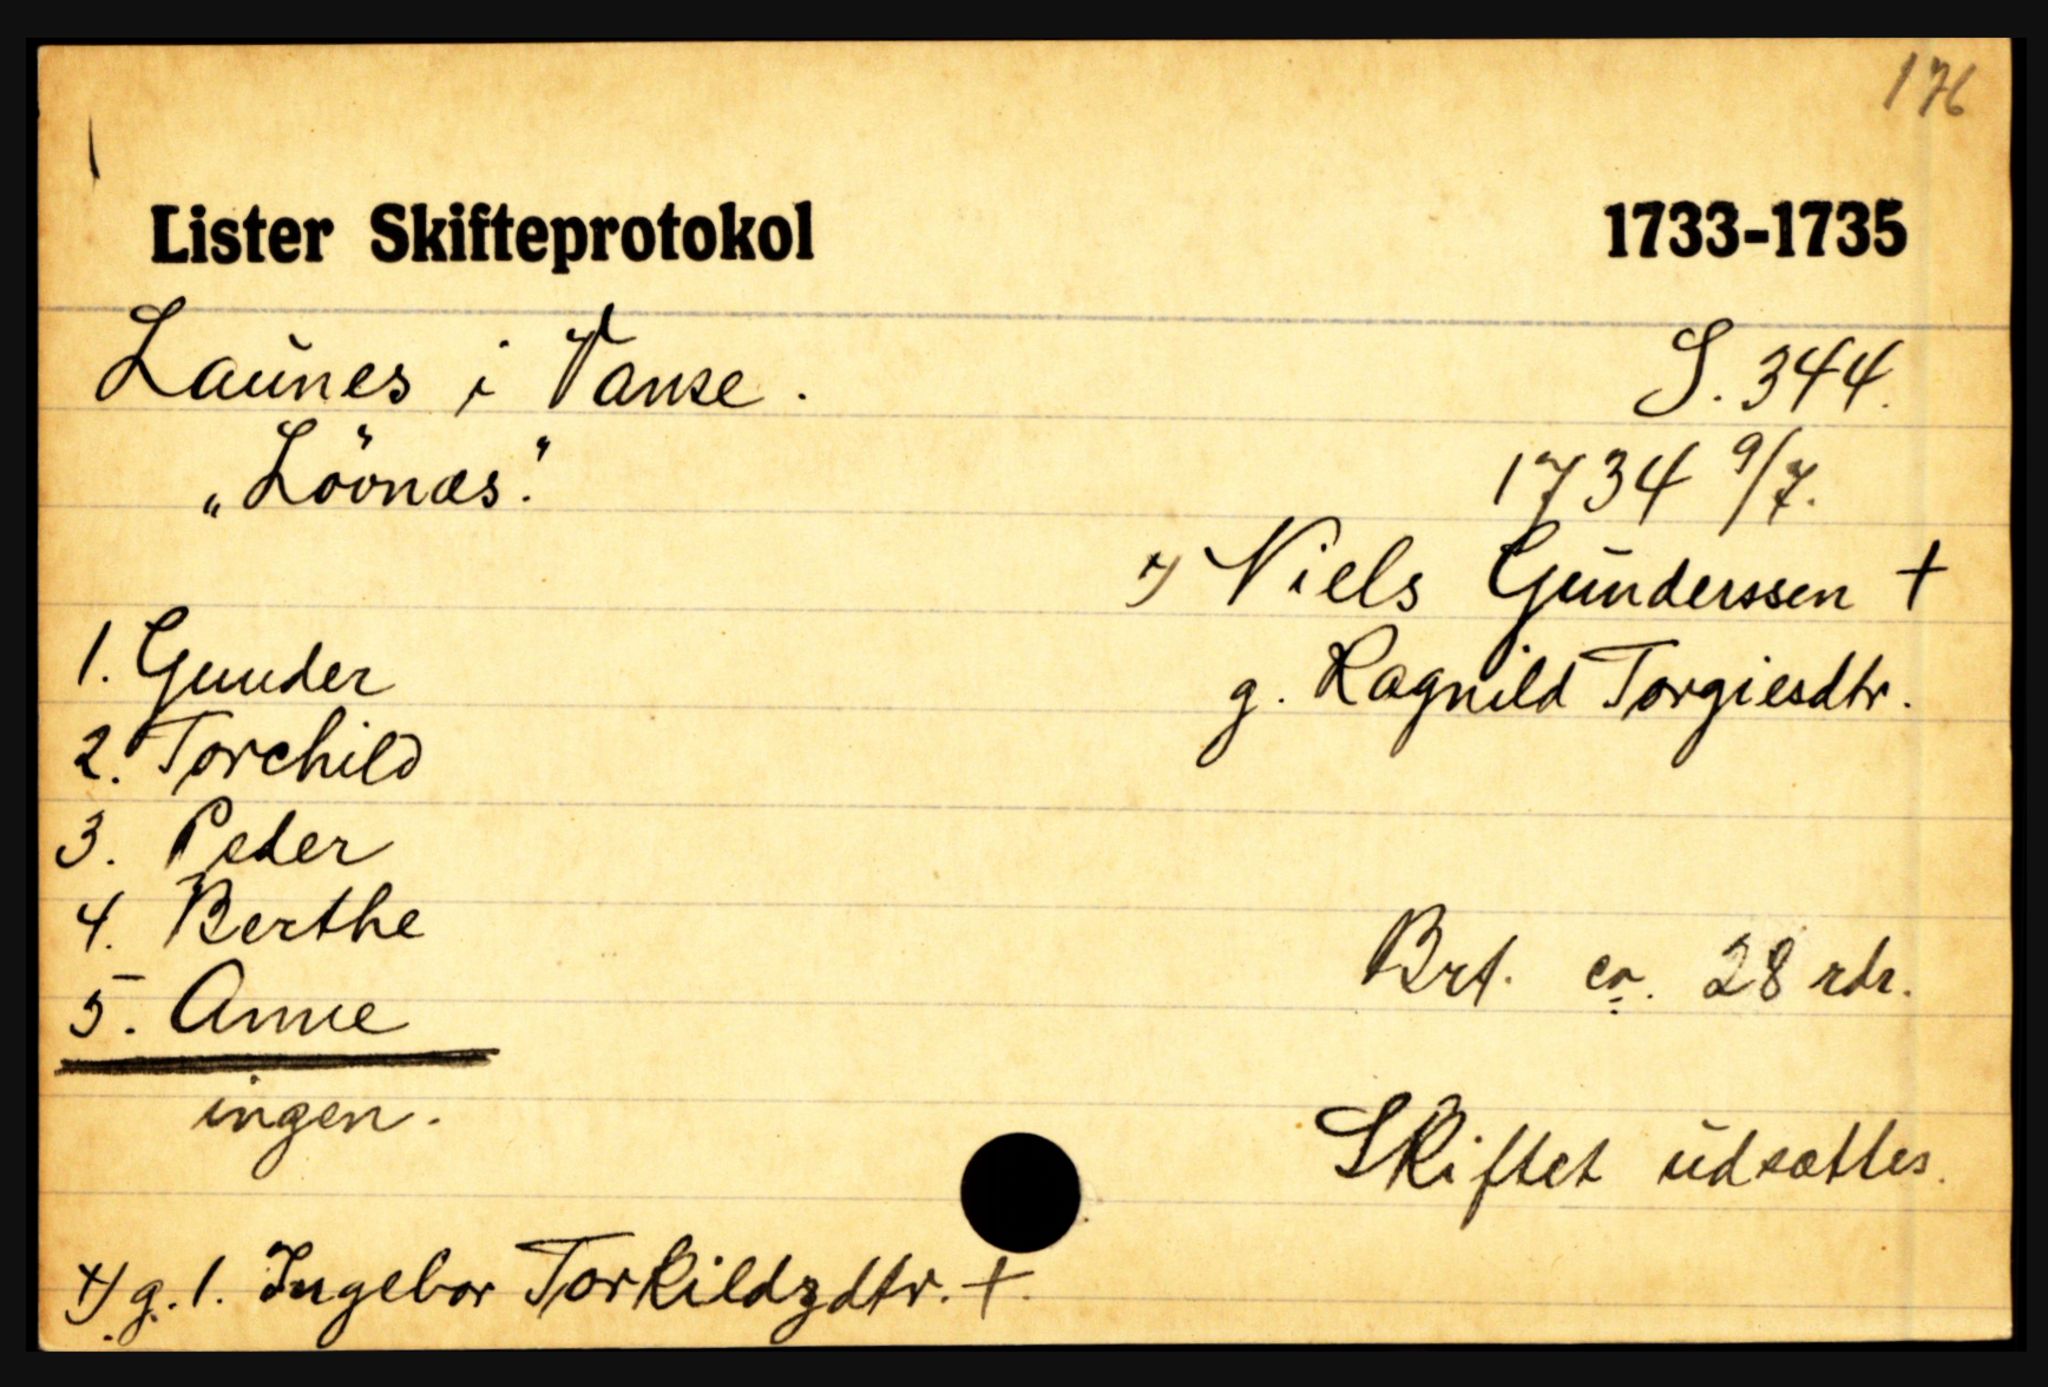 176
Lister Skifteprotokol 1733-1735
Launes i Vanse. S. 344.
„Lövnæs." 1734 9/7.
x) Niels Gunderssen +
1. Gunder
g. Ragnild Torgiesdtr.
2. Torchild
3. Peder
4. Berthe
Brt. ca. 28 rdr.
5. Anne
ingen.
Skiftet udsættes.
x) g. 1. Ingebor Torkildzdtr. +.